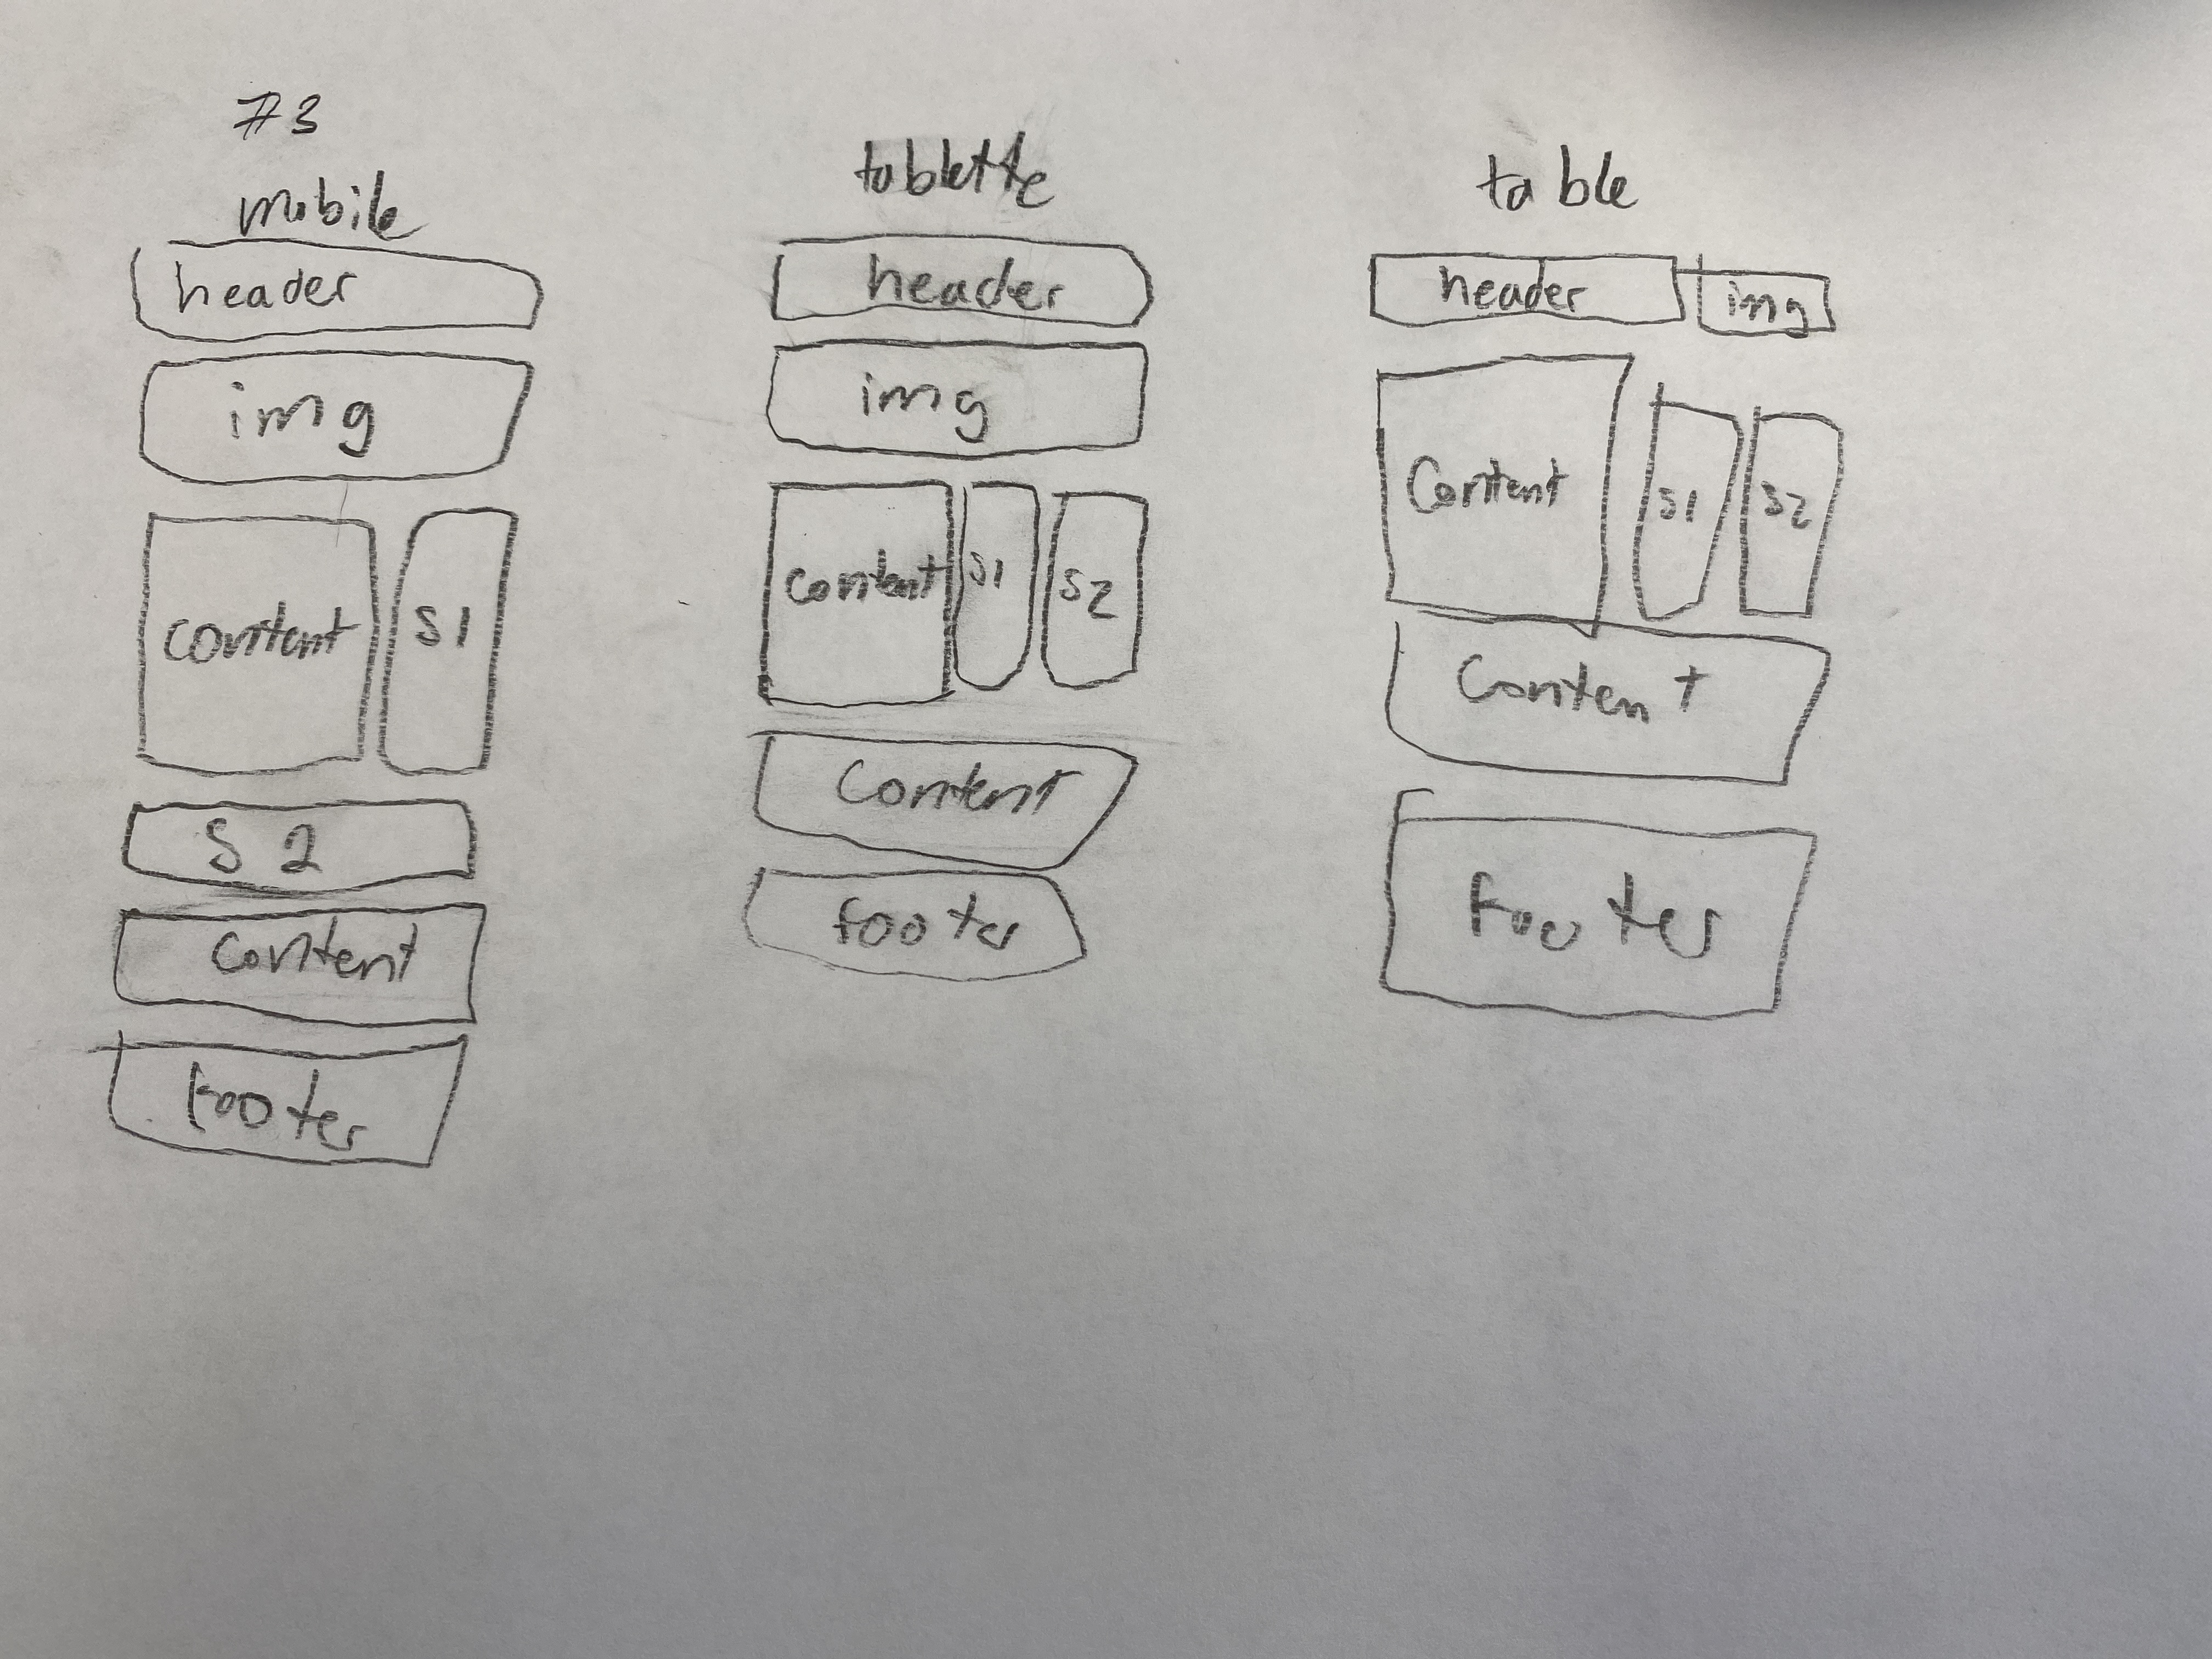 #3
mobile
header
img
content s1
S 2
content
footer
tablette
header
img
content s1 s2
content
footer
table
header img
Content s1 s2
Content
footer